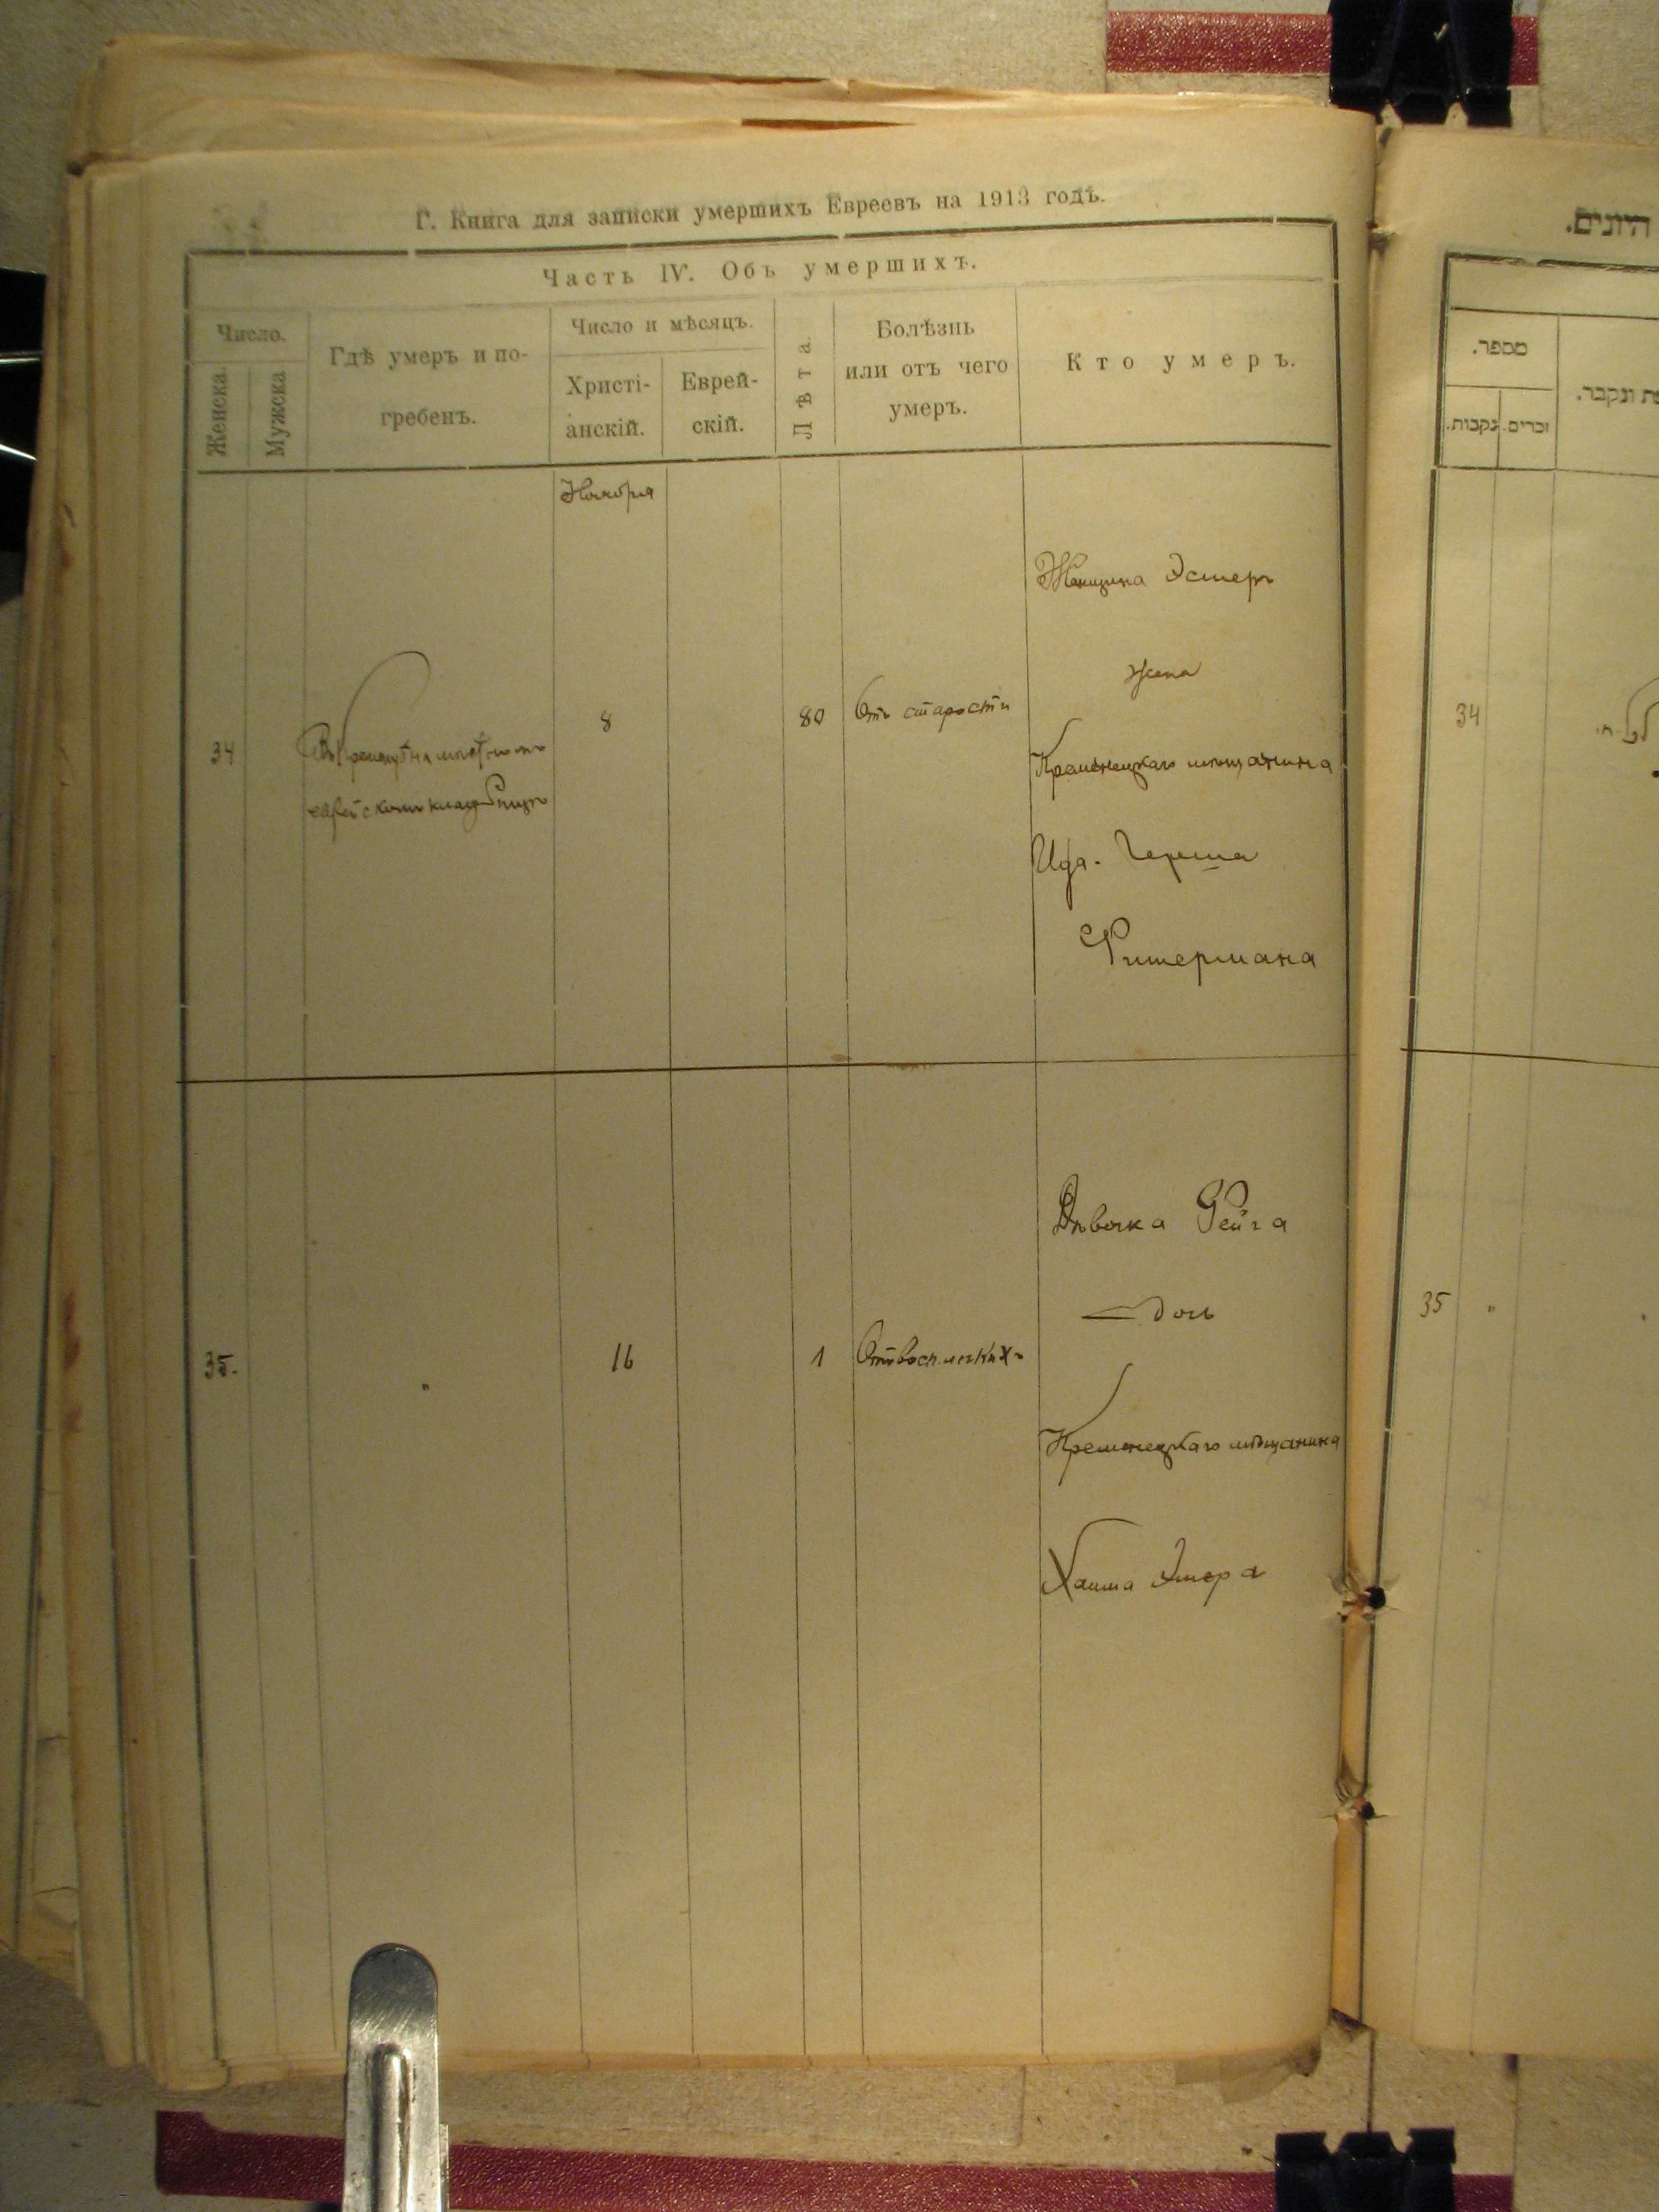 Г. Книга для записки умершихъ Евреевъ на 1913 годъ.
Часть IV. Объ умершихъ.
Число.
Женска.
Мужска
Гдѣ умеръ и по-
гребенъ.
Число и мѣсяцъ.
Христі-
анскій.
Еврей-
скій.
Лѣта.
Болѣзнь
или отъ чего
умеръ.
Кто умеръ.
Ноября
34
еврейскомъ кладбищѣ
8
80
Отъ старости
Женщина Эстеръ
жена
Кременецкаго мѣщанина
Герша
35.
"
16
1
Отъ восп. легкихъ
Дѣвочка Рейза
дочь
Кременецкаго мѣщанина
Хаима
היונים.
מספר.
זכרים.
נקבות.
ונקבר.
34
35
"